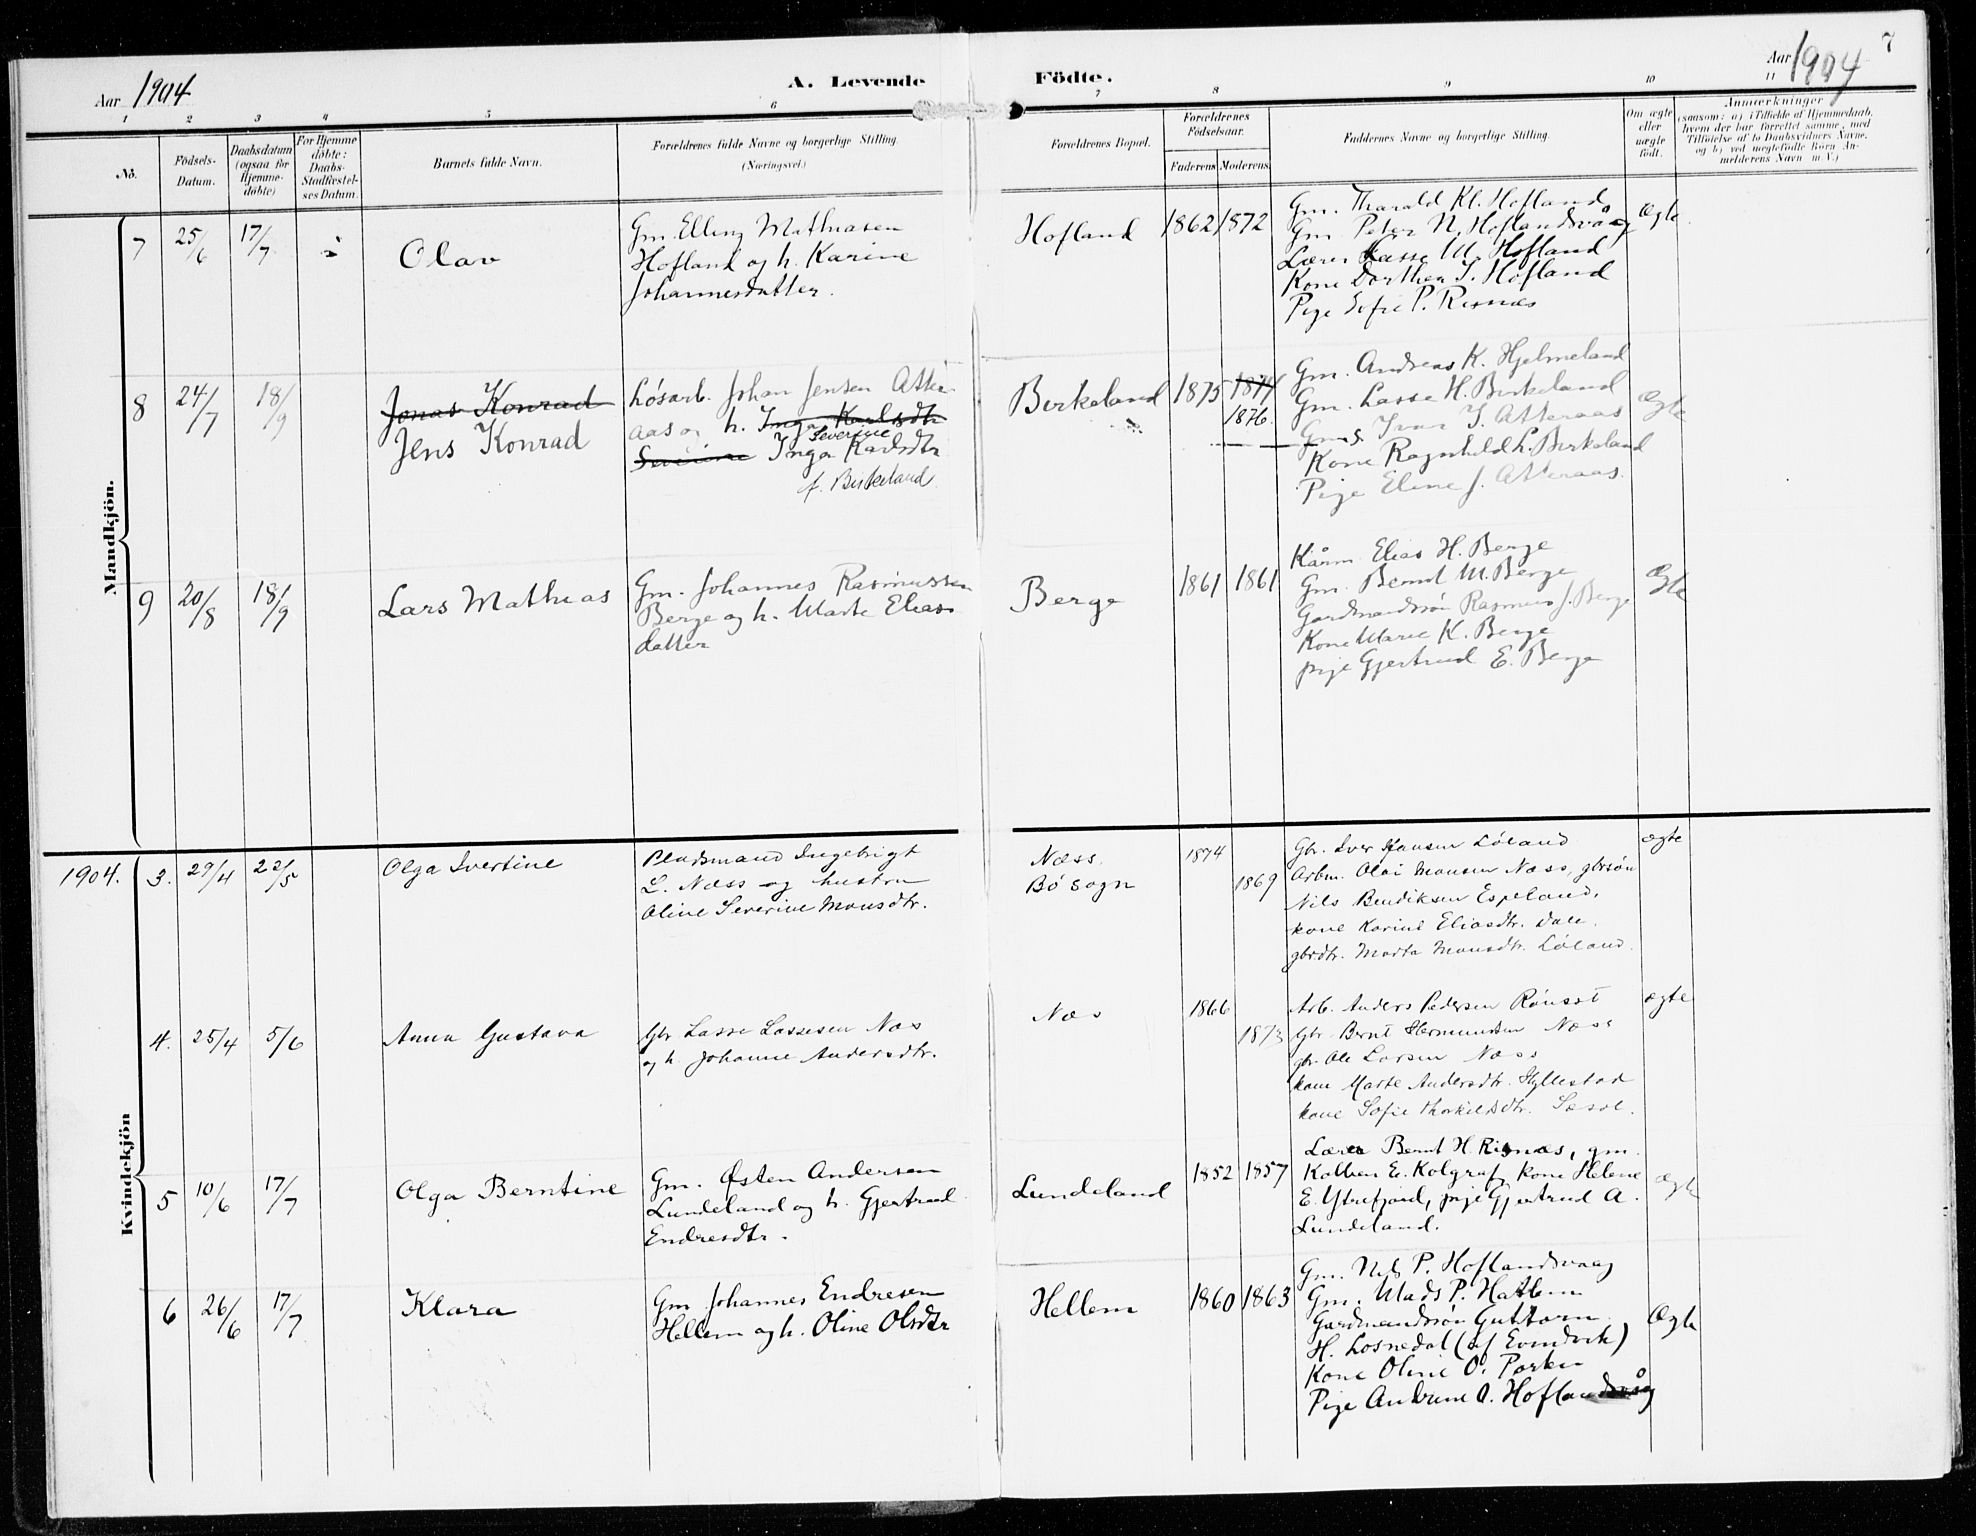 7
Aar 1904
A. Levende Födte.
Aar 1904
1 2 3 4 5 6 7 8 9 10 11
No.
Födsels-
Datum.
Daabsdatum
(ogsaa for
Hjemme-
döbte)
For Hjemme
döbte:
Daabs-
Stadfæstel-
ses Datum.
Barnets fulde Navn.
Forældrenes fulde Navne og borgerlige Stilling.
(Næringsvei.)
Forældrenes Bopæl.
Forældrenes
Födselsaar.
Faderens Moderens
Faddernes Navne og borgerlige Stilling.
Om ægte
eller
uægte
födt.
Anmærkninger
(saasom: a) i Tilfælde af Hjemmedaab,
hvem der har forrettet samme, med
Tilföielse af to Daabsvidners Navne,
og b) ved uegtefödte Börn An-
melderens Navn m. V.)
Mandkjön.
7 25/6 17/7
Olav
Gm. Elling Mathiasen
Hofland og h. Karine
Johannesdatter.
Hofland 1862 1872
Gm. Tharald Kl. Hofland
Gm Peter N. Hoflandsvåg
Lærer Lasse M. Hofland
Kone Dorthea I. Hofland
Pige Sofie P. Risnæs
Ægte
8 24/7 18/9
Jonas Konrad
Jens Konrad
Løsarb. Johan Jensen Atter-
aas og h. Inga Karlsdtr
Severine Inga Severine Karlsdtr
f. Birkeland
Birkeland 1875 1874
1876.
Gm. Andreas K. Hjelmeland
Gm. Lasse H. Birkeland
Gms. Ivar J. Atteraas
Kone Ragnhild L. Birkeland
Pige Eline J. Atteraas.
Ægte
9 20/8 18/9
Lars Mathias
Gm. Johannes Rasmussen
Berge og h. Marte Elias
datter
Berge 1861 1861
Kårm. Elias H. Berge
Gm. Bernt M. Berge
Gardmandssøn Rasmus J. Berge
Kone Marie K. Berge
pige Gjertrud E. Berge
Ægte
Kvindekjön
1904. 3. 29/4 22/5
Olga Ivertine
Pladsmand Ingebrigt
L. Næss og hustru
Oline Severine Monsdtr.
Næss.
Bø sogn
1874
1869
Gbr. Iver Hansen Løland
Arbm. Olai Monsen Næss, gbrsøn
Nils Bendiksen Espeland,
kone Karine Eliasdtr. Dale.
gbrdtr. Marta Monsdtr. Løland.
ægte
4. 25/4 5/6
Anna Gustava
Gbr Lasse Lassesen Næs
og h. Johanne Andersdtr.
Næs
1866
1873
Arb. Anders Pedersen Rønset
Gbr. Bernt Hermundsen Næss
gbr. Ole Larsen Næss
kone Marte Andersdtr. Hyllestad
kone Sofie Thorkildsdtr. Sæsol.
ægte
5 10/6 17/7
Olga Berntine
Gm. Østen Andersen
Lundeland og h. Gjertrud
Endresdtr.
Lundeland 1852 1857
Lærer Bernt H. Risnæs, gm.
Kolben E. Kolgraf, kone Helene
E. Ytrefjord, pige Gjertrud A.
Lundeland.
ægte
6 26/6 17/7
Klara
Gm Johannes Endresen
Hellem og h. Oline Olsdtr
Hellem 1860 1863
Gm. Nils P. Hoflandsvaag
Gm. Mads P. Hatlem
Gardmandssøn Guttorm
H. Losnedal (af Evindvik)
Kone Oline O. Porten
Pige Andrine O. Hoflandsvåg
Ægte